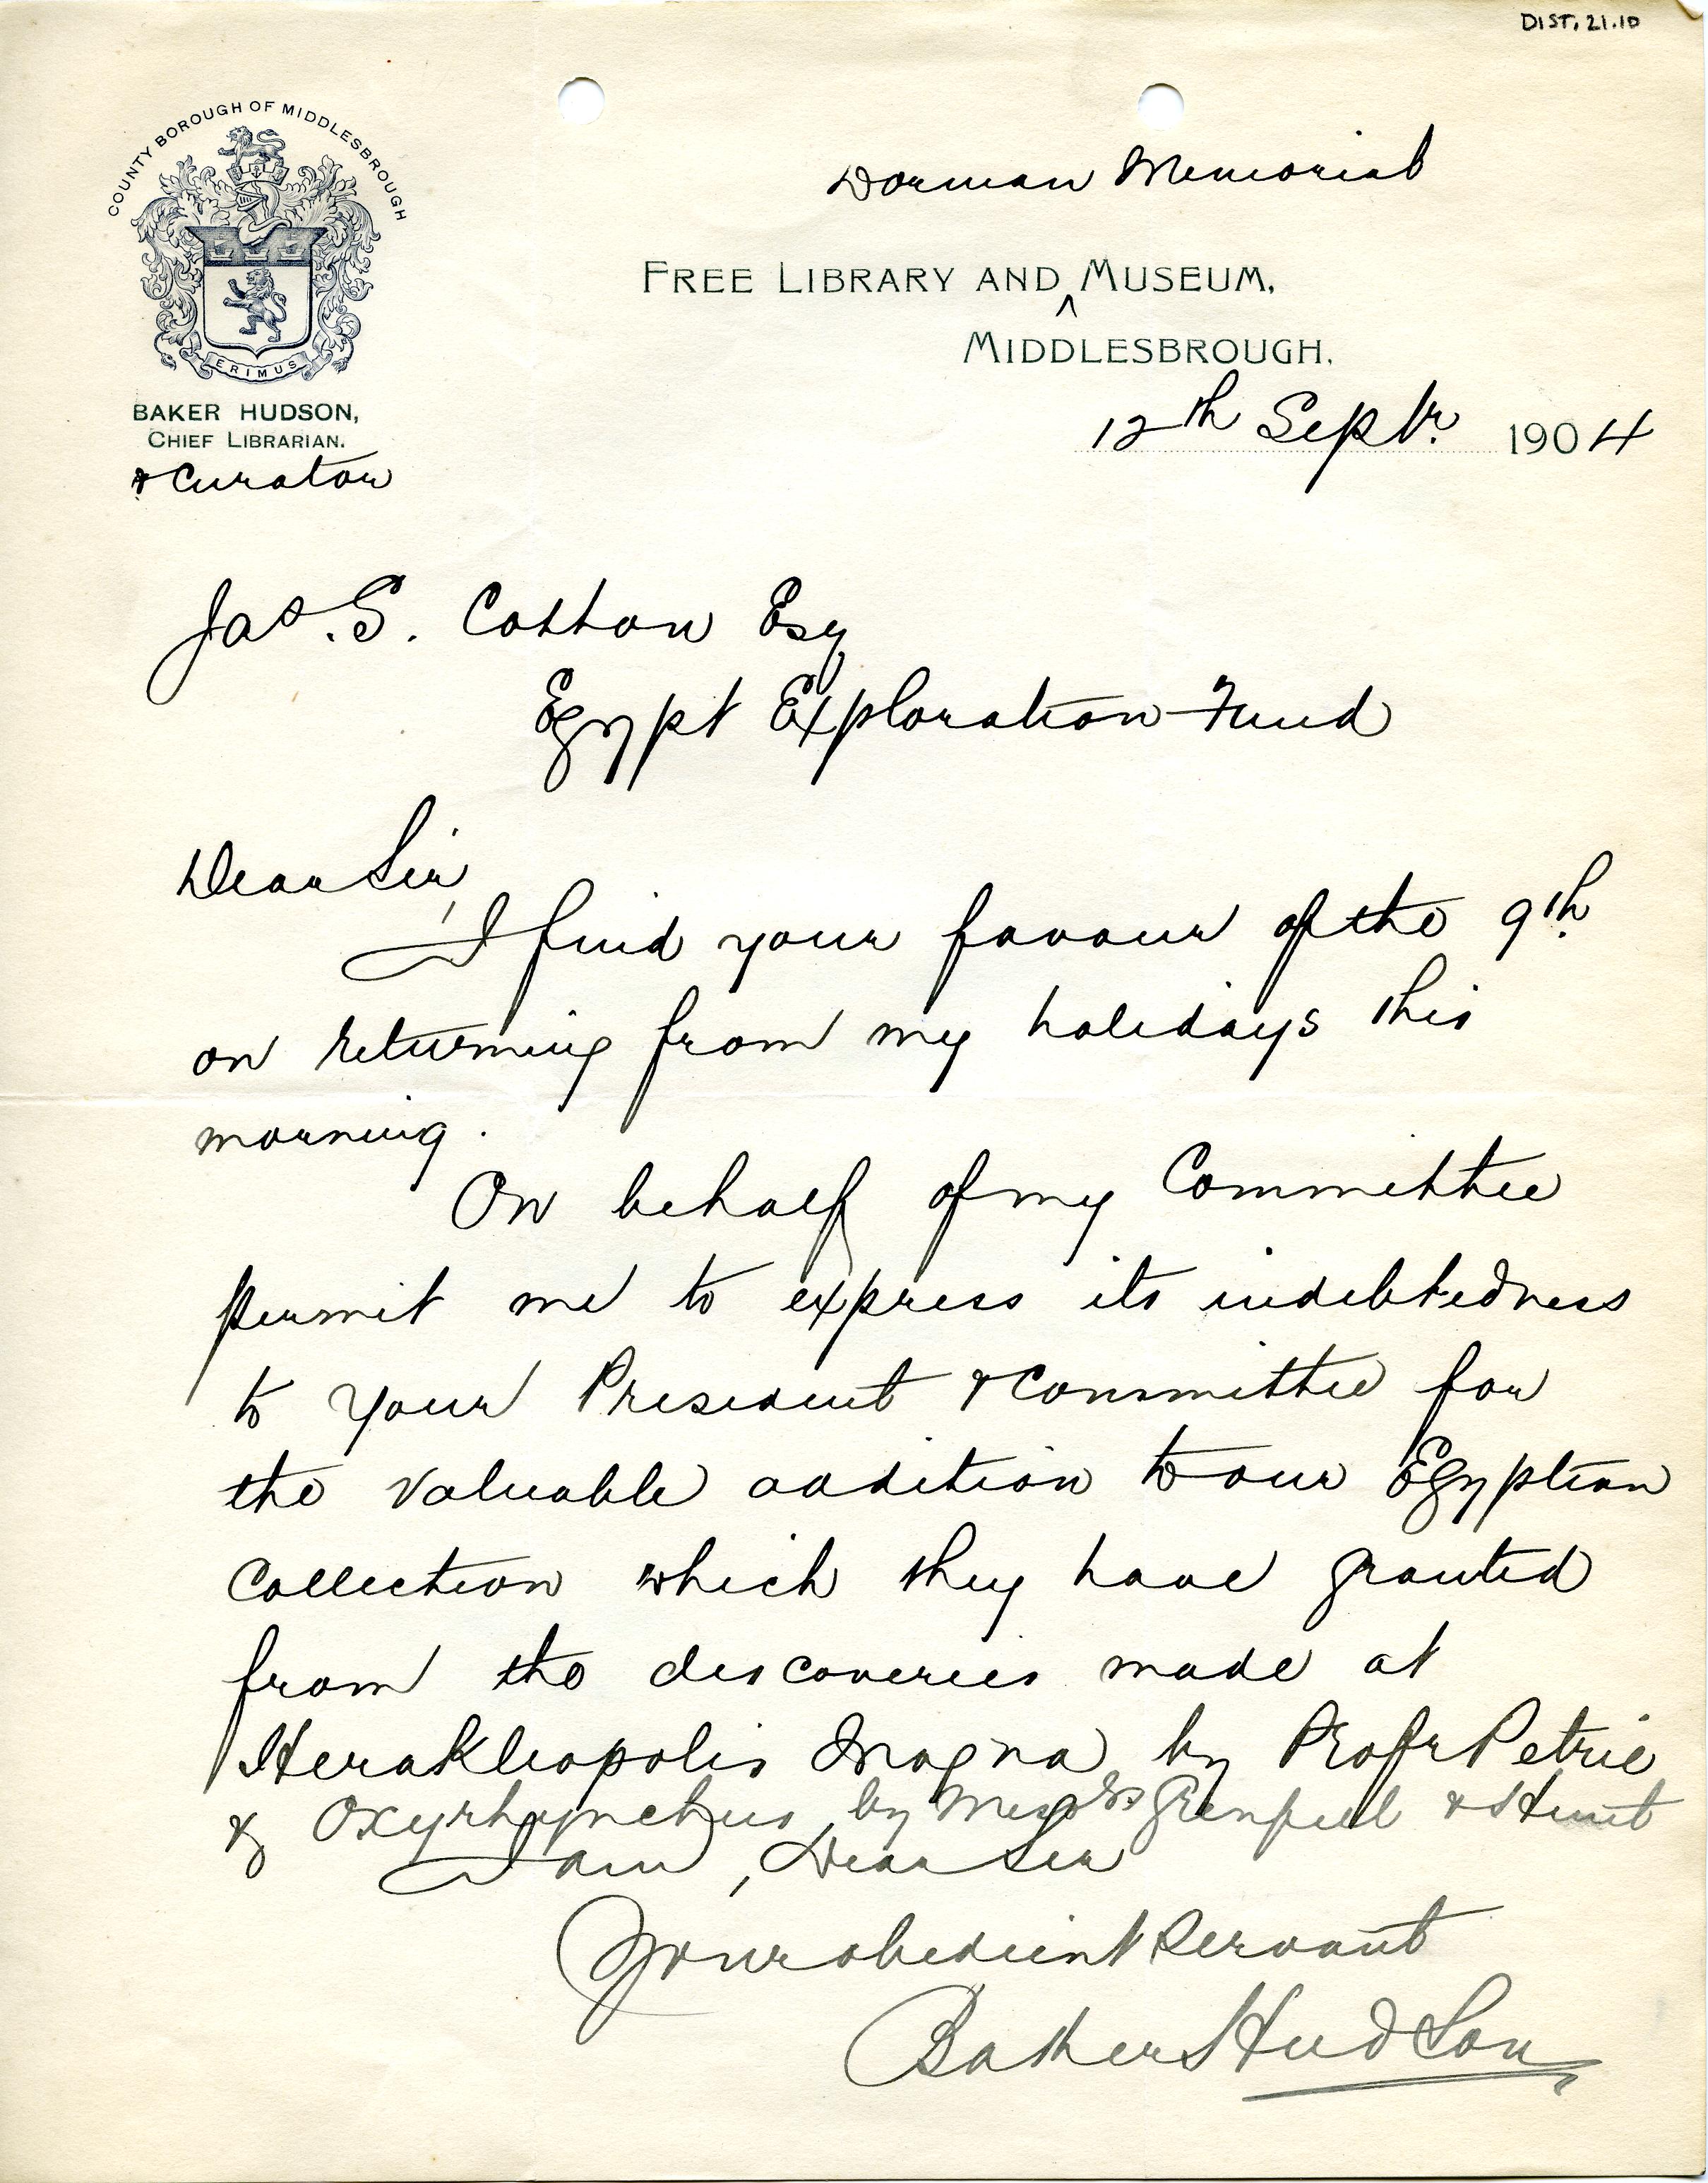 DIST. 21.10
COUNTY BOROUGH OF MIDDLESBROUGH
ERIMUS
BAKER HUDSON,
CHIEF LIBRARIAN.
& Curator
Dorman Memorial
FREE LIBRARY AND ^ MUSEUM,
MIDDLESBROUGH.
12th Septr. 1904
Jas. S. Cotton Esq
Egypt Exploration Fund
Dear Sir,
I find your favour of the 9th.
on returning from my holidays this
morning.
On behalf of my Committee
permit me to express its indebtedness
to your President & Committee for
the valuable addition to our Egyptian
Collection which they have granted
from the discoveries made at
Herakleopolis Magna by Profr Petrie
& Oxyrhynchus by Messrs Grenfell & Hunt
I am, Dear Sir
Your obedient Servant
Baker Hudson